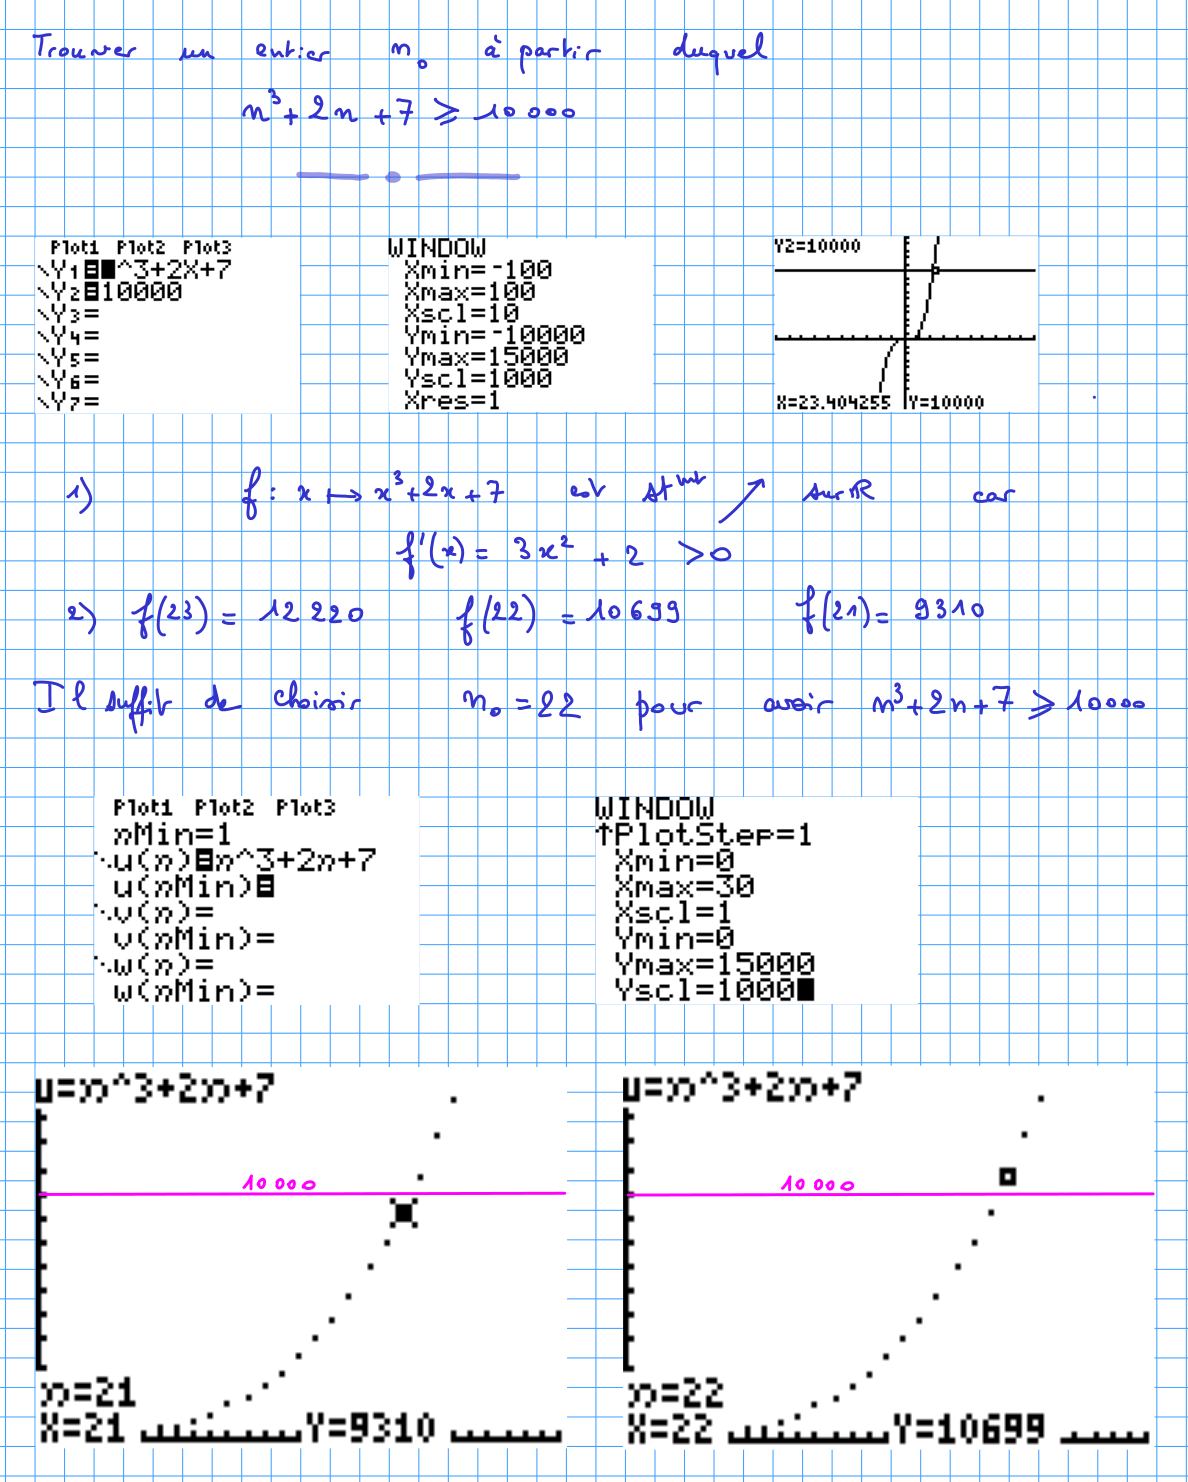 Trouver un entier n₀ à partir duquel
n³+2n+7 ⩾ 10000
Plot1 Plot2 Plot3
\Y1=■^3+2X+7
\Y2=10000
\Y3=
\Y4=
\Y5=
\Y6=
\Y7=
WINDOW
Xmin=-100
Xmax=100
Xscl=10
Ymin=-10000
Ymax=15000
Yscl=1000
Xres=1
Y2=10000
X=23.404255 Y=10000
1) f: x ↦ x³+2x+7 est stmt ↗ sur ℝ car
f'(x) = 3x² + 2 >0
2) f(23) = 12 220 f(22) = 10 699 f(21) = 9310
Il suffit de choisir n₀ = 22 pour avoir n³+2n+7 ⩾ 10000
Plot1 Plot2 Plot3
nMin=1
u(n)=n^3+2n+7
u(nMin)=
v(n)=
v(nMin)=
w(n)=
w(nMin)=
WINDOW
↑PlotStep=1
Xmin=0
Xmax=30
Xscl=1
Ymin=0
Ymax=15000
Yscl=1000
u=n^3+2n+7
10 000
n=21
X=21 Y=9310
u=n^3+2n+7
10 000
n=22
X=22 Y=10699